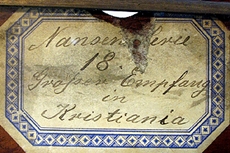 Nansen Serie
18.
Grosser Empfang
in
Kristiania